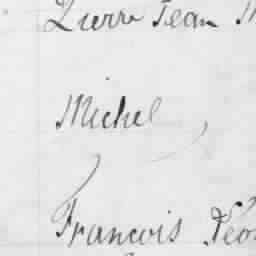 Pierre Jean
Michel
Francois